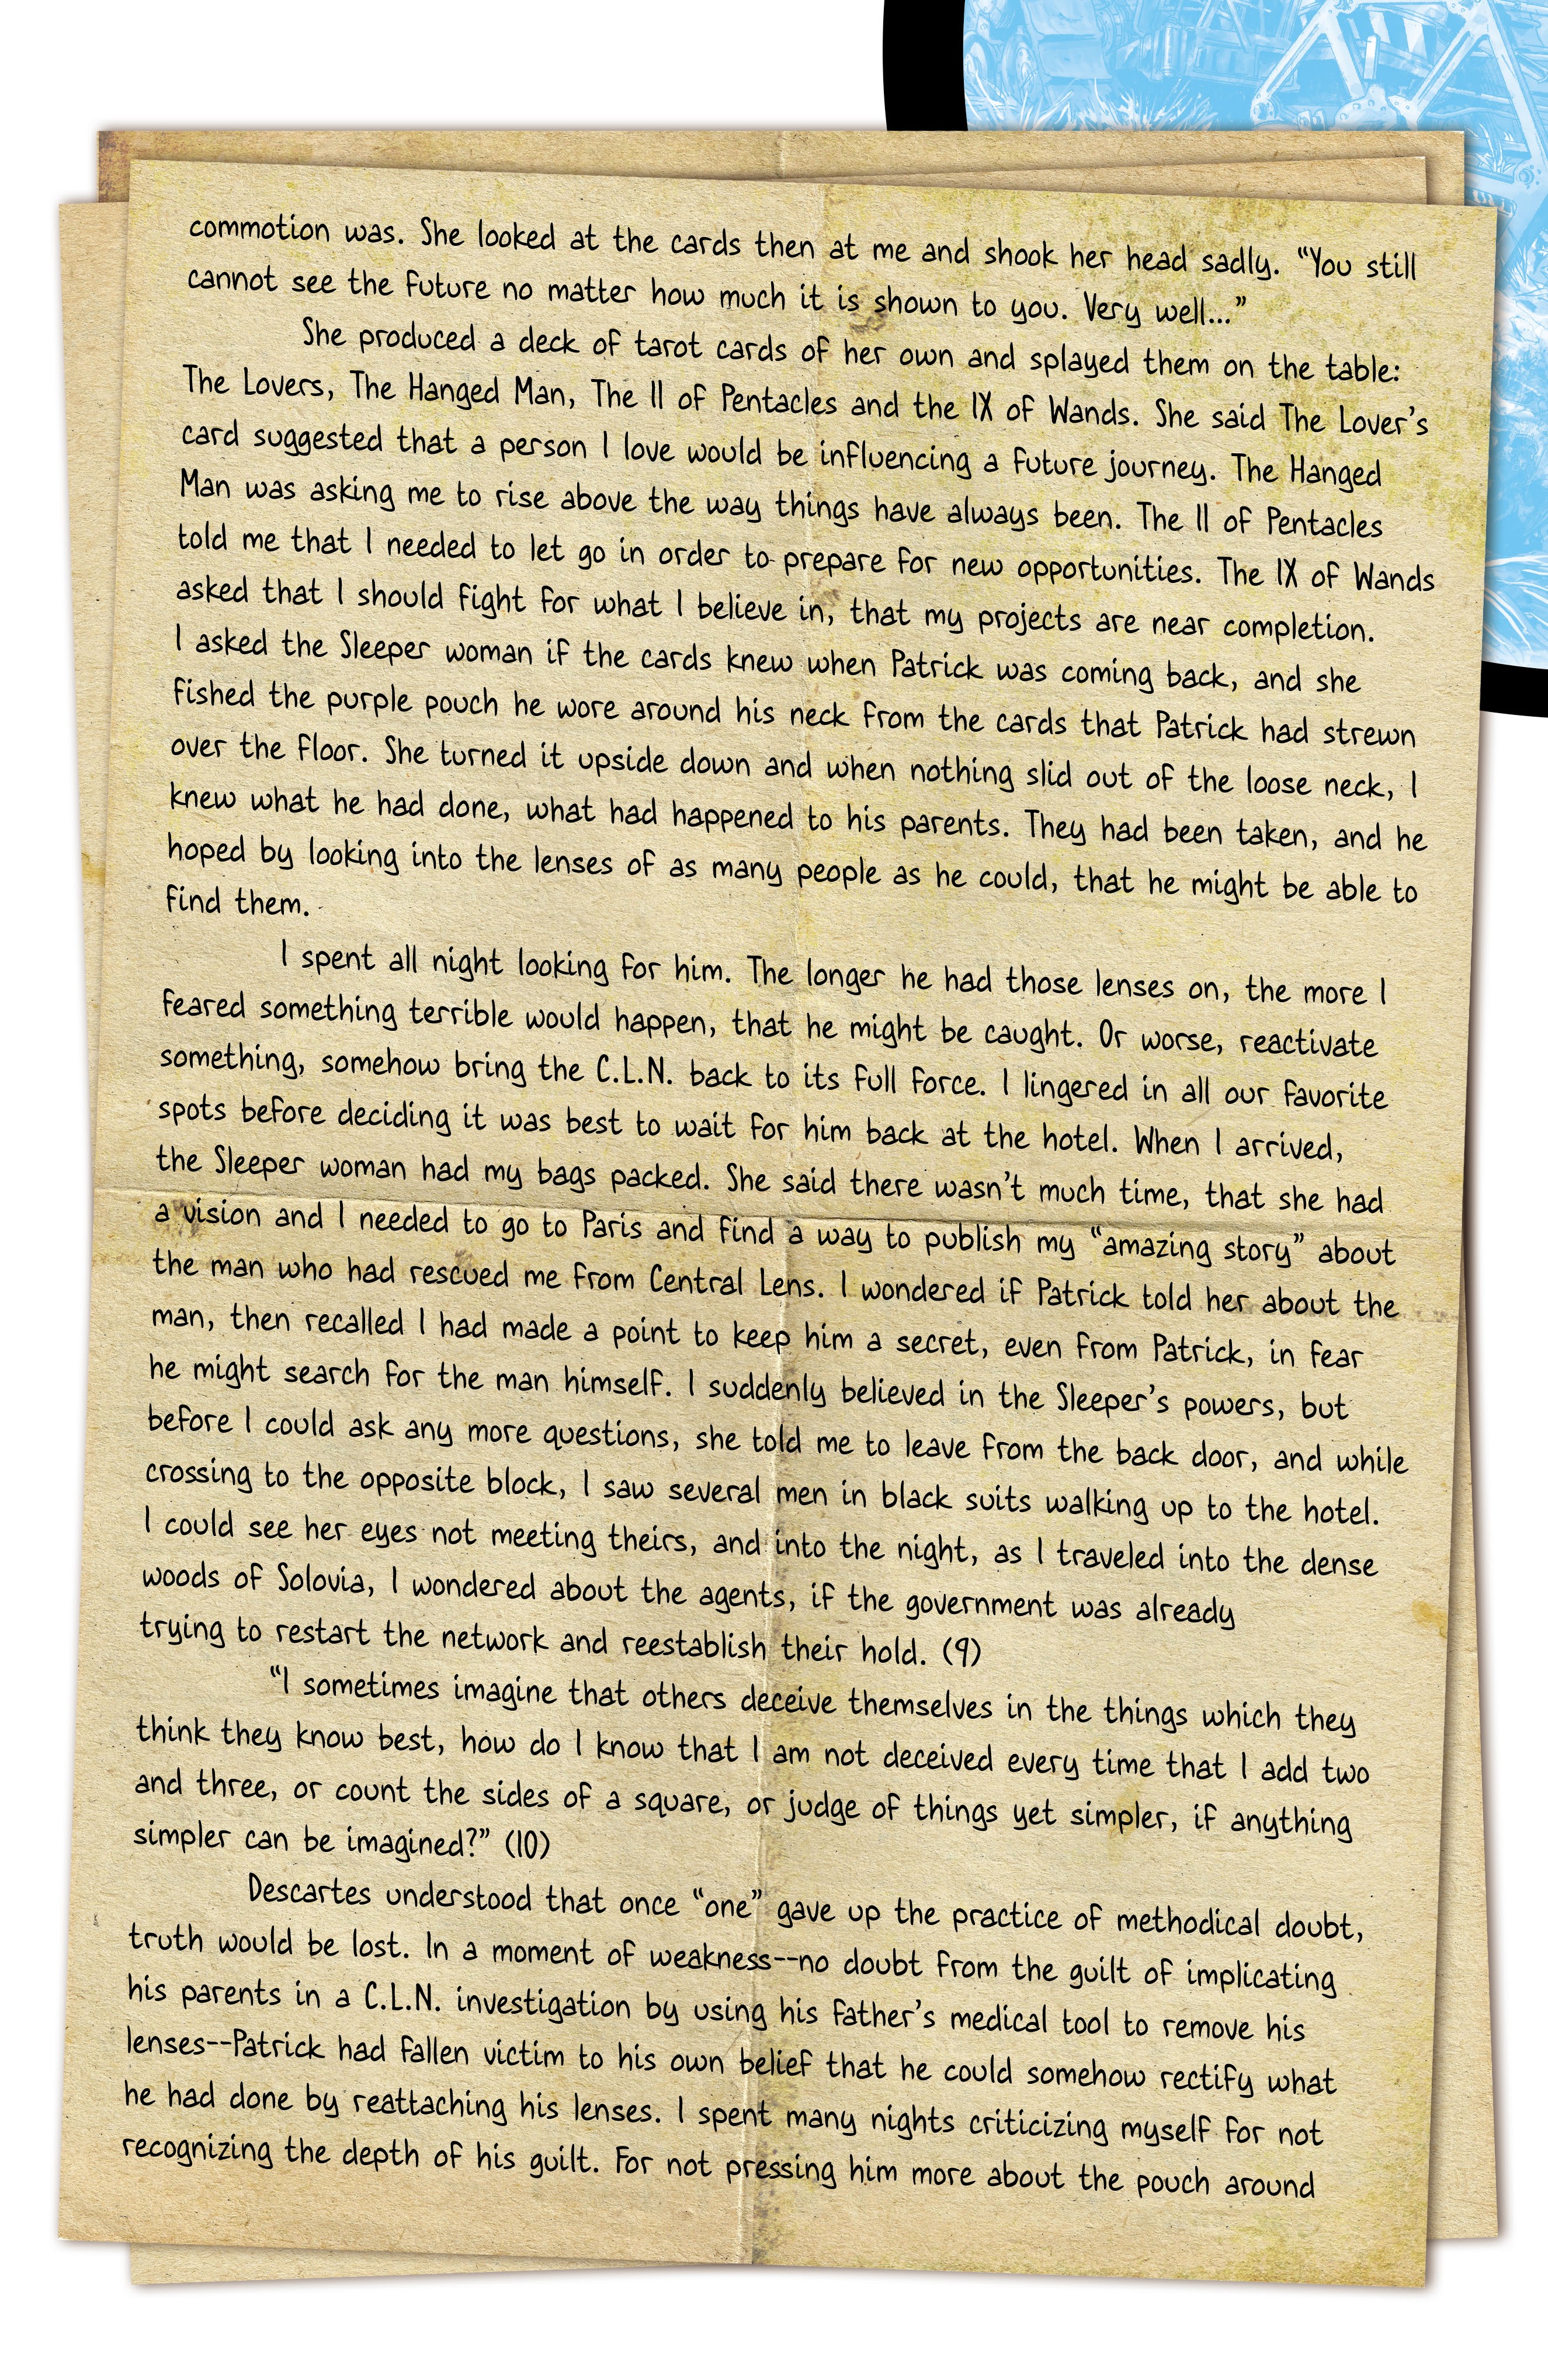 commotion was. She looked at the cards then at me and shook her head sadly. “You still
cannot see the future no matter how much it is shown to you. Very well...”
She produced a deck of tarot cards of her own and splayed them on the table:
The Lovers, The Hanged Man, The II of Pentacles and the IX of Wands. She said The Lover’s
card suggested that a person I love would be influencing a future journey. The Hanged
Man was asking me to rise above the way things have always been. The II of Pentacles
told me that I needed to let go in order to prepare for new opportunities. The IX of Wands
asked that I should fight for what I believe in, that my projects are near completion.
I asked the Sleeper woman if the cards knew when Patrick was coming back, and she
fished the purple pouch he wore around his neck from the cards that Patrick had strewn
over the floor. She turned it upside down and when nothing slid out of the loose neck, I
knew what he had done, what had happened to his parents. They had been taken, and he
hoped by looking into the lenses of as many people as he could, that he might be able to
find them.
I spent all night looking for him. The longer he had those lenses on, the more I
feared something terrible would happen, that he might be caught. Or worse, reactivate
something, somehow bring the C.L.N. back to its full force. I lingered in all our favorite
spots before deciding it was best to wait for him back at the hotel. When I arrived,
the Sleeper woman had my bags packed. She said there wasn’t much time, that she had
a vision and I needed to go to Paris and find a way to publish my “amazing story” about
the man who had rescued me from Central Lens. I wondered if Patrick told her about the
man, then recalled I had made a point to keep him a secret, even from Patrick, in fear
he might search for the man himself. I suddenly believed in the Sleeper’s powers, but
before I could ask any more questions, she told me to leave from the back door, and while
crossing to the opposite block, I saw several men in black suits walking up to the hotel.
I could see her eyes not meeting theirs, and into the night, as I traveled into the dense
woods of Solovia, I wondered about the agents, if the government was already
trying to restart the network and reestablish their hold. (9)
“I sometimes imagine that others deceive themselves in the things which they
think they know best, how do I know that I am not deceived every time that I add two
and three, or count the sides of a square, or judge of things yet simpler, if anything
simpler can be imagined?” (10)
Descartes understood that once “one” gave up the practice of methodical doubt,
truth would be lost. In a moment of weakness--no doubt from the guilt of implicating
his parents in a C.L.N. investigation by using his father’s medical tool to remove his
lenses--Patrick had fallen victim to his own belief that he could somehow rectify what
he had done by reattaching his lenses. I spent many nights criticizing myself for not
recognizing the depth of his guilt. For not pressing him more about the pouch around